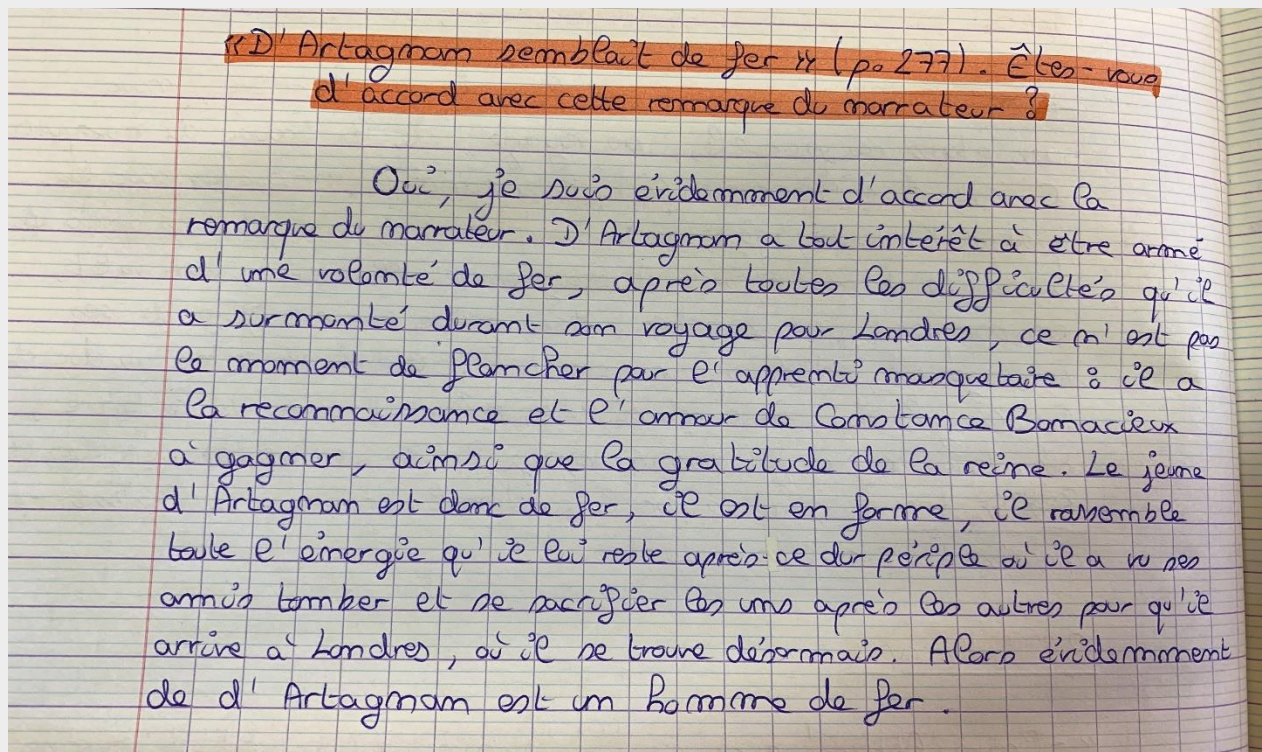 « D'Artagnan semblait de fer » (p. 277). Êtes-vous
d'accord avec cette remarque du narrateur ?
Oui, je suis évidemment d'accord avec la
remarque du narrateur. D'Artagnan a tout intérêt à être armé
d'une volonté de fer, après toutes les difficultés qu'il
a surmonté durant son voyage pour Londres, ce n'est pas
le moment de flancher pour l'apprenti mousquetaire : il a
la reconnaissance et l'amour de Constance Bonacieux
à gagner, ainsi que la gratitude de la reine. Le jeune
d'Artagnan est donc de fer, il est en forme, il rassemble
toute l'énergie qu'il lui reste après ce dur périple où il a vu ses
amis tomber et se sacrifier les uns après les autres pour qu'il
arrive à Londres, où il se trouve désormais. Alors évidemment
de d'Artagnan est un homme de fer.